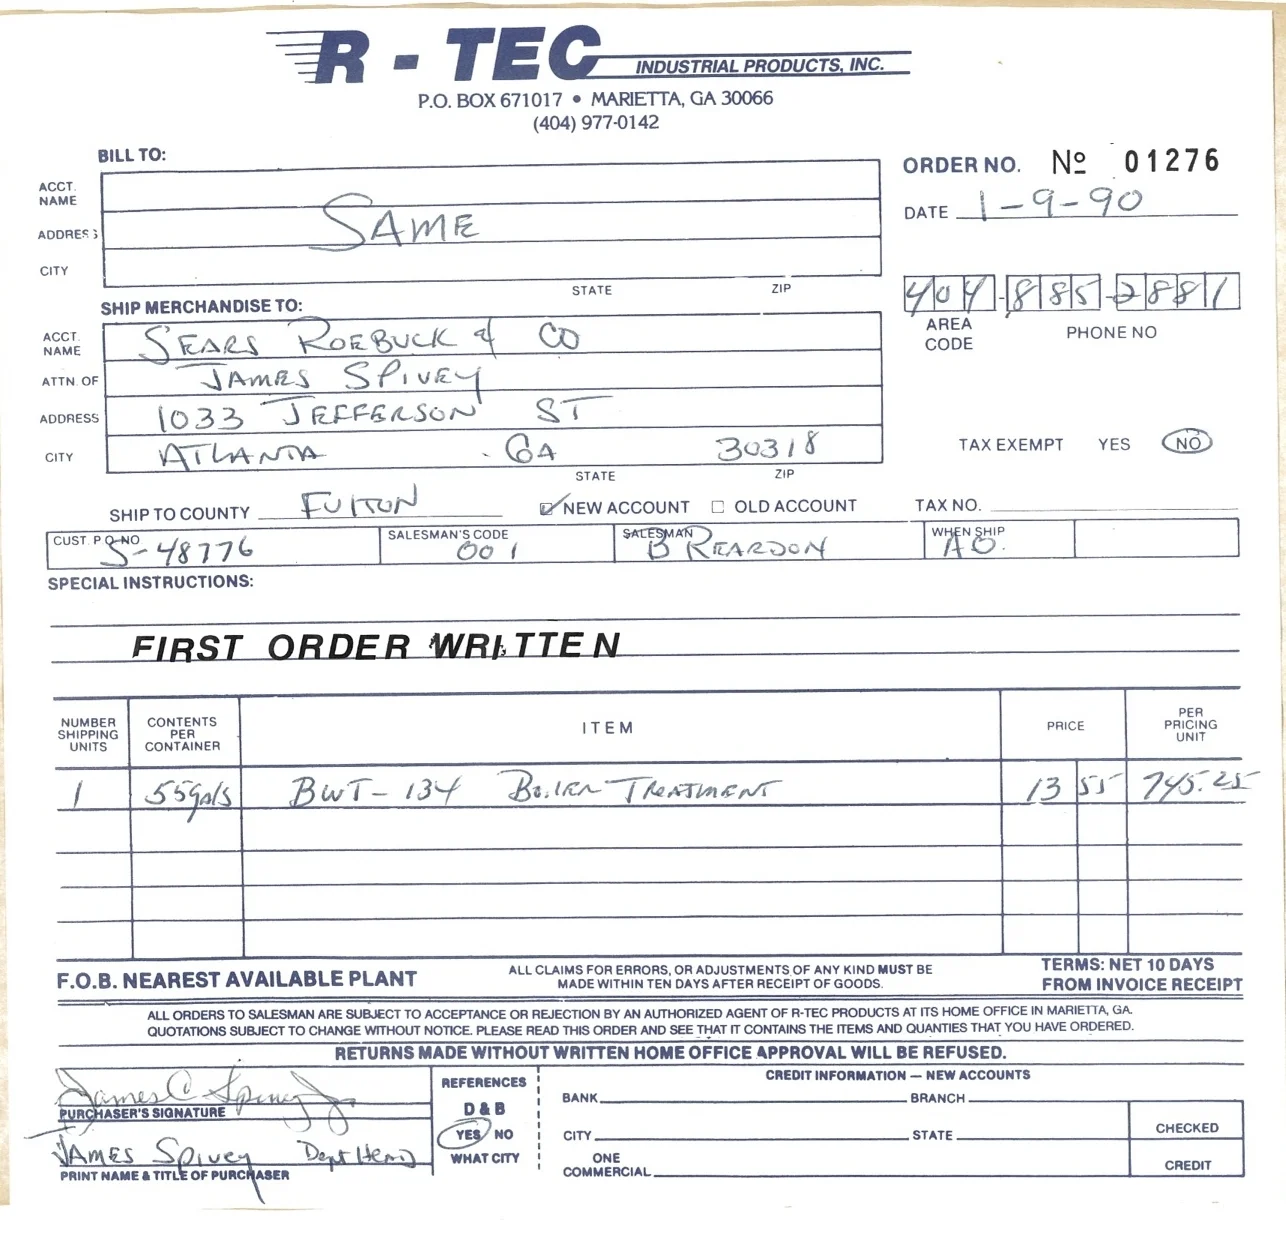 R - TEC INDUSTRIAL PRODUCTS, INC.
P.O. BOX 671017 • MARIETTA, GA 30066
(404) 977-0142
BILL TO:
ORDER NO. № 01276
ACCT. NAME
DATE 1-9-90
ADDRESS SAME
CITY
STATE ZIP
404-885-2881
AREA CODE PHONE NO
SHIP MERCHANDISE TO:
ACCT. NAME SEARS ROEBUCK & CO
ATTN. OF JAMES SPIVEY
ADDRESS 1033 JEFFERSON ST
CITY ATLANTA GA 30318
STATE ZIP
TAX EXEMPT YES NO
SHIP TO COUNTY FULTON NEW ACCOUNT OLD ACCOUNT TAX NO.
CUST. P.O. NO S-48776 SALESMAN'S CODE 001 SALESMAN B REARDON WHEN SHIP AO.
SPECIAL INSTRUCTIONS:
FIRST ORDER WRITTEN
NUMBER SHIPPING UNITS CONTENTS PER CONTAINER ITEM PRICE PER PRICING UNIT
1 55gals BWT-134 BOILER TREATMENT 13 55 745.25
F.O.B. NEAREST AVAILABLE PLANT
ALL CLAIMS FOR ERRORS, OR ADJUSTMENTS OF ANY KIND MUST BE
MADE WITHIN TEN DAYS AFTER RECEIPT OF GOODS.
TERMS: NET 10 DAYS
FROM INVOICE RECEIPT
ALL ORDERS TO SALESMAN ARE SUBJECT TO ACCEPTANCE OR REJECTION BY AN AUTHORIZED AGENT OF R-TEC PRODUCTS AT ITS HOME OFFICE IN MARIETTA, GA.
QUOTATIONS SUBJECT TO CHANGE WITHOUT NOTICE. PLEASE READ THIS ORDER AND SEE THAT IT CONTAINS THE ITEMS AND QUANTIES THAT YOU HAVE ORDERED.
RETURNS MADE WITHOUT WRITTEN HOME OFFICE APPROVAL WILL BE REFUSED.
James C Spivey Jr
PURCHASER'S SIGNATURE
JAMES SPIVEY Dept Head
PRINT NAME & TITLE OF PURCHASER
REFERENCES
D & B
YES NO
WHAT CITY
CREDIT INFORMATION — NEW ACCOUNTS
BANK BRANCH
CITY STATE
ONE COMMERCIAL
CHECKED
CREDIT